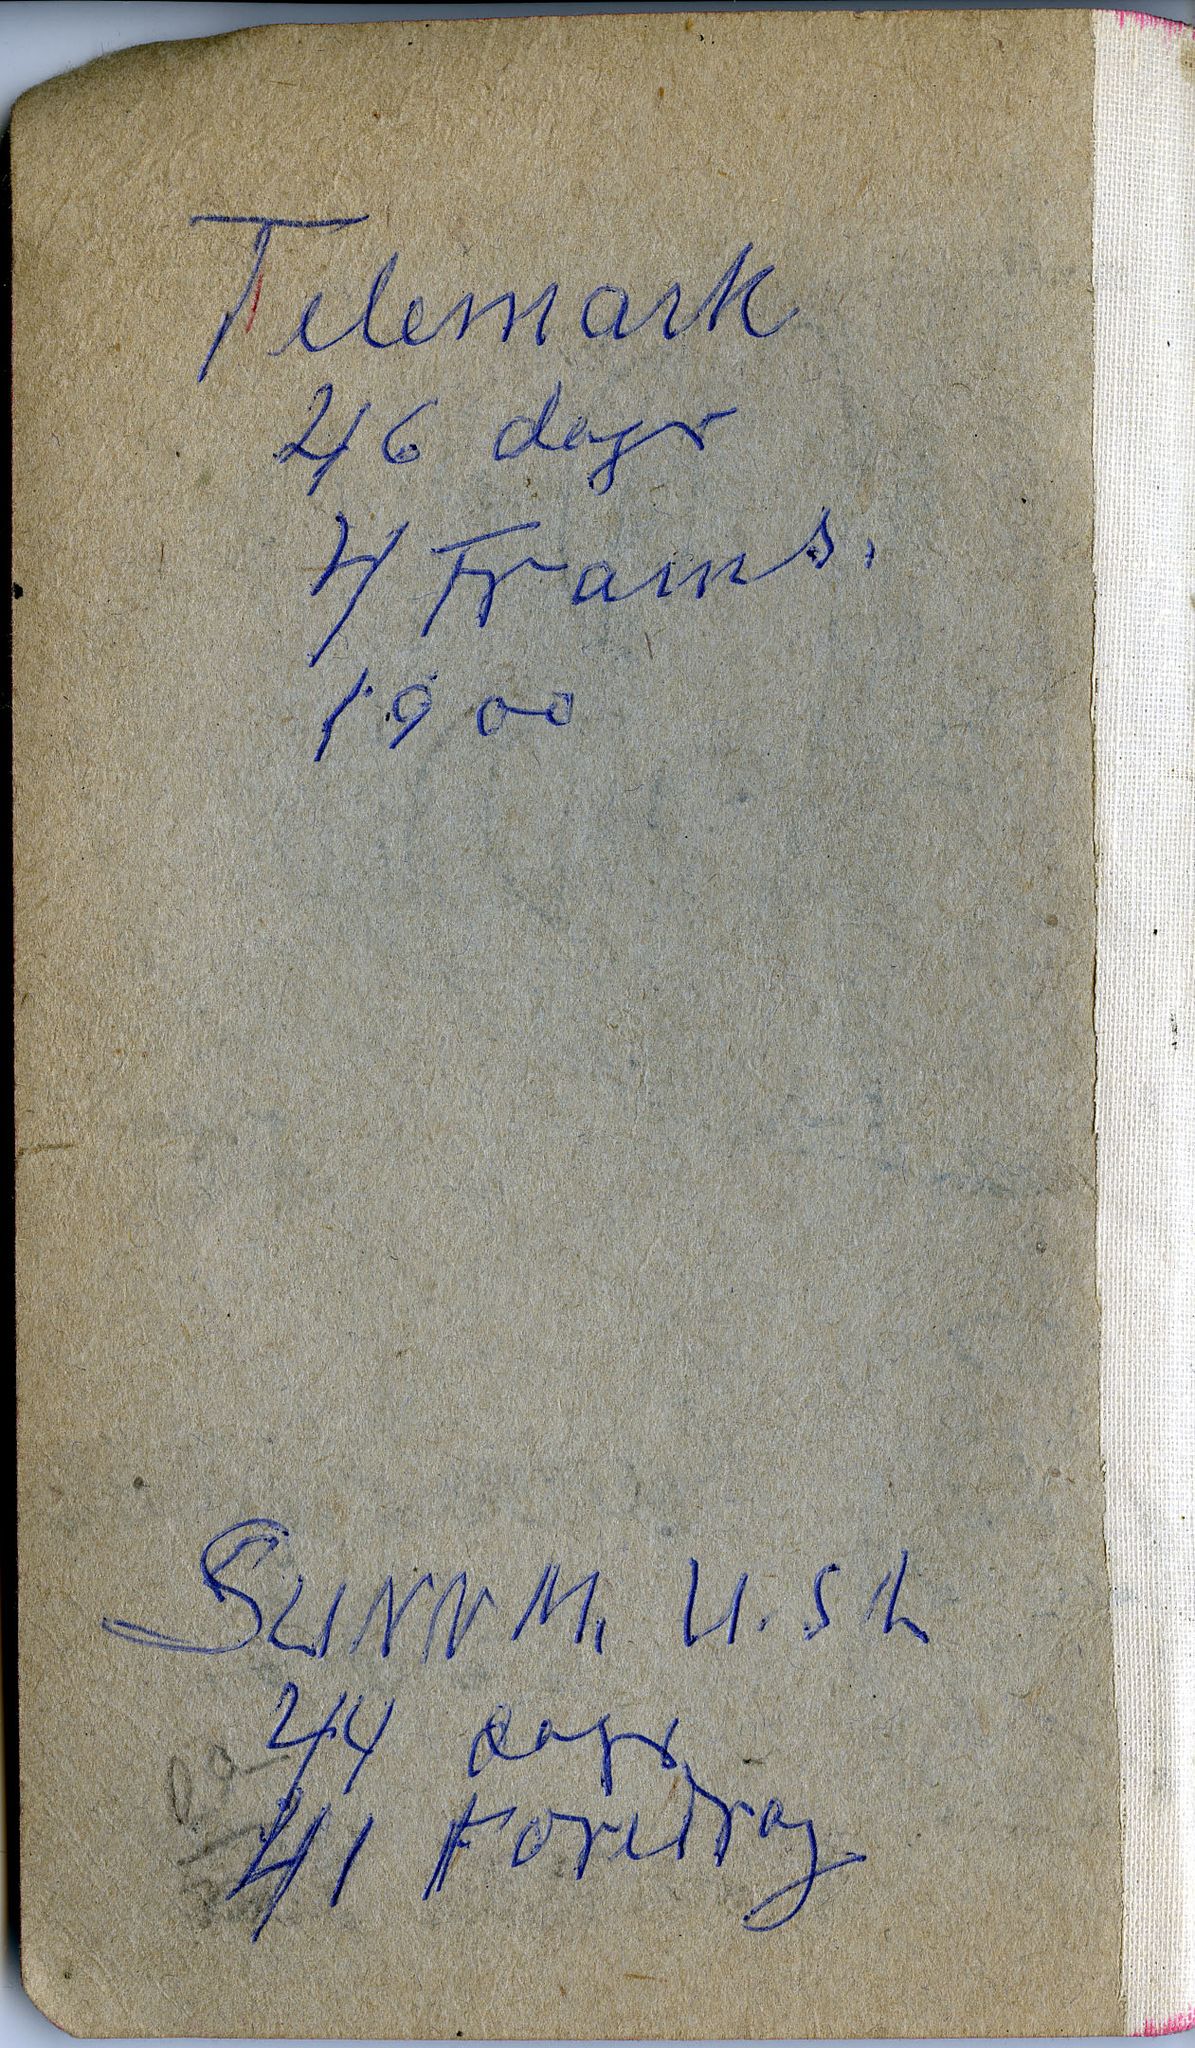 Telemark
46 dagr
4 Frams.
1900
SUNNM. U.SL
44 dagr
41 Foredrag